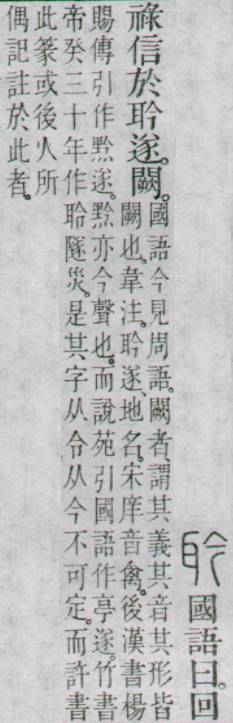 耹國語曰。回
祿信於耹遂。闕。國語今見周語。闕者、謂其義其音其形皆
闕也。韋注。耹遂、地名。宋庠音禽。後漢書楊
賜傳引作黔遂。黔亦今聲也。而說苑引國語作亭遂。竹書
帝癸三十年作聆隧災。是其字从令从今不可定。而許書
此篆或後人所
偶記註於此者。